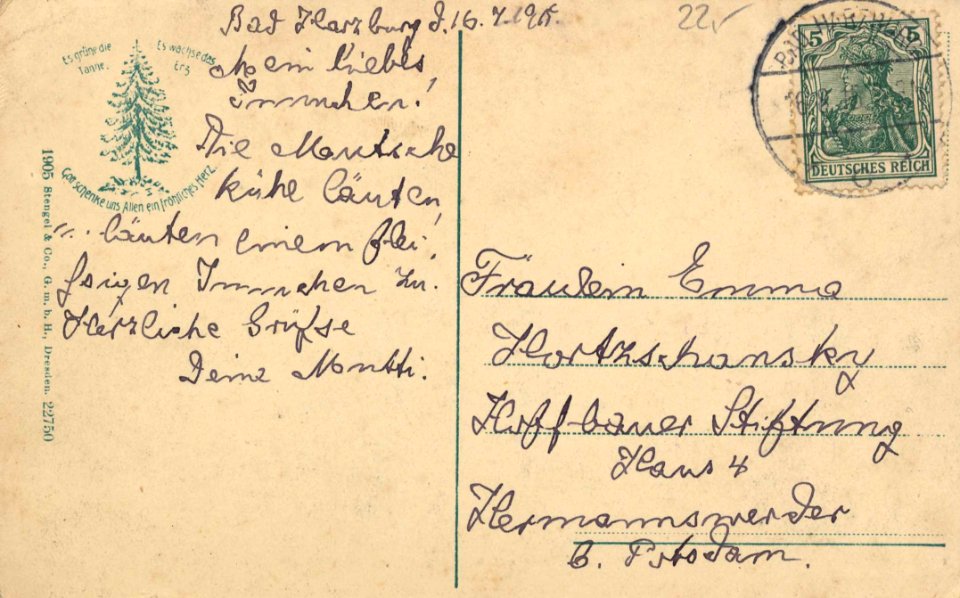 Bad Harzburg d. 16. 7. 1915.
22,-
Mein liebes,
Immchen!
Die
kühe läuten,
läuten einem flei,
ssigen Immchen zu.
Herzliche Grüsse
Deine Mutti.
Es grüne die
Tanne,
Es wachse das
Erz
Gott schenke uns Allen ein fröhliches Herz.
1905 Stengel & Co., G. m. b. H., Dresden. 22750
BAD HARZBURG
5 5
DEUTSCHES REICH
Fräulein Emma
Hortzschansky
Hoffbauer Stiftung
Haus 4
Hermannswerder
b. Potsdam.